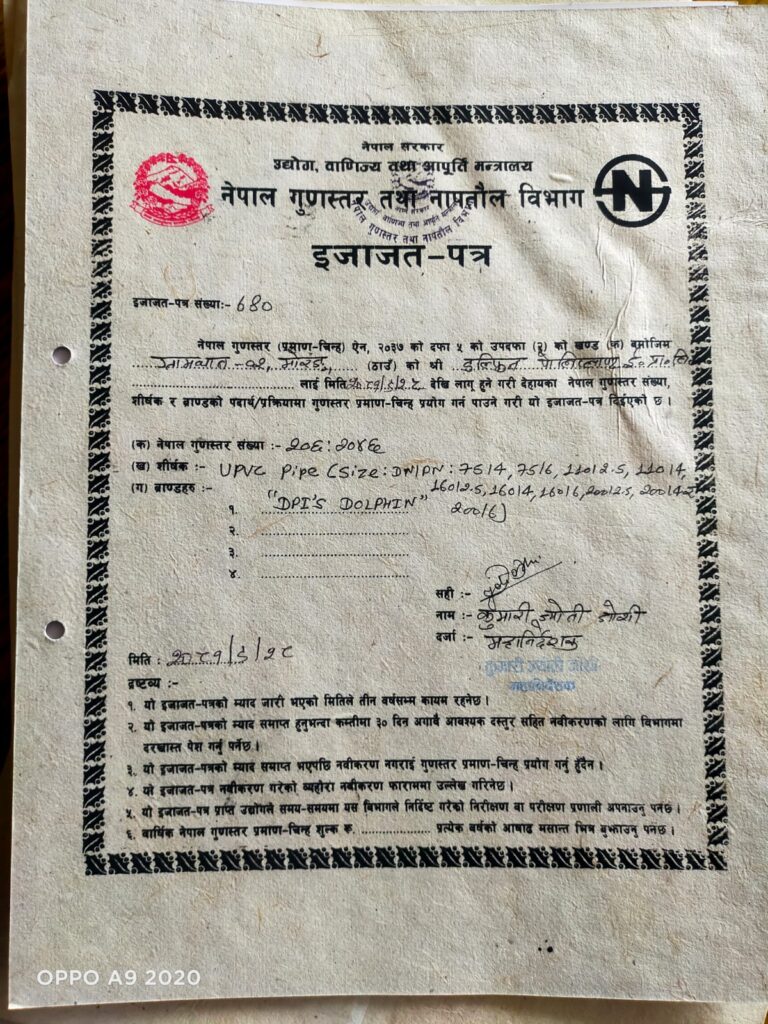 नेपाल सरकार
उद्योग, वाणिज्य तथा आपूर्ति मन्त्रालय
नेपाल गुणस्तर तथा नापतौल विभाग
N
इजाजत-पत्र
इजाजत-पत्र संख्याः- 680
नेपाल गुणस्तर (प्रमाण-चिन्ह) ऐन, २०३७ को दफा ५ को उपदफा (२) को खण्ड (क) बमोजिम
मोरङ, (ठाउँ) को श्री डल्फिन
लाई मिति देखि लागु हुने गरी देहायका नेपाल गुणस्तर संख्या,
शीर्षक र ब्राण्डको पदार्थ/प्रक्रियामा गुणस्तर प्रमाण-चिन्ह प्रयोग गर्न पाउने गरी यो इजाजत-पत्र दिईएको छ ।
(क) नेपाल गुणस्तर संख्या :- २०६:२०४६
(ख) शीर्षक :- UPVC Pipe (Size: DN/PN: 75/4, 75/6, 110/2.5, 110/4,
160/2.5, 160/4, 160/6, 200/2.5, 200/4 र
200/6)
(ग) ब्राण्डहरु :-
१. "DPI'S DOLPHIN"
२.
३.
४
सही :-
नाम :- कुमारी ज्योती जोशी
दर्जा :- महानिर्देशक
कुमारी ज्योती जोशी
महानिर्देशक
मिति : २०८१/६/२८
द्रष्टव्य :-
१. यो इजाजत-पत्रको म्याद जारी भएको मितिले तीन वर्षसम्म कायम रहनेछ ।
२. यो इजाजत-पत्रको म्याद समाप्त हुनुभन्दा कम्तीमा ३० दिन अगावै आवश्यक दस्तुर सहित नवीकरणको लागि विभागमा
दरखास्त पेश गर्नु पर्नेछ ।
३. यो इजाजत-पत्रको म्याद समाप्त भएपछि नवीकरण नगराई गुणस्तर प्रमाण-चिन्ह प्रयोग गर्नु हुँदैन ।
४. यो इजाजत-पत्र नवीकरण गरेको व्यहोरा नवीकरण फाराममा उल्लेख गरिनेछ ।
५. यो इजाजत-पत्र प्राप्त उद्योगले समय-समयमा यस विभागले निर्दिष्ट गरेको निरीक्षण वा परीक्षण प्रणाली अपनाउनु पर्नेछ ।
६. वार्षिक नेपाल गुणस्तर प्रमाण-चिन्ह शुल्क रु. .................. प्रत्येक वर्षको आषाढ मसान्त भित्र बुझाउनु पर्नेछ ।
OPPO A9 2020